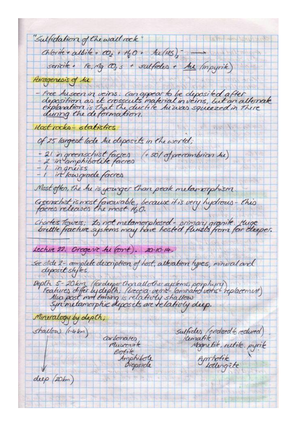 "Sulfidation of the wall rock"
chlorite + albite + CO₂ + H₂O + Au(HS)₂⁻ →
sericite + Fe, Mg CO₃ + sulfides + Au (in pyrite)
Paragenesis of Au
- Free Au seen in veins. Can appear to be deposited after
deposition as it crosscuts material in veins, but an alternate
explanation is that the ductile Au was squeezed in there
during the deformation.
Host rocks - statistics
Of 25 largest lode Au deposits in the world:
- 21 in greenschist facies
- 2 in amphibolite facies
- 1 in
- 1 in low grade facies
Most often the Au is younger than peak metamorphism
Greenschist is most favourable, because it is very hydrous. This
facies releases the most H₂O.
Charters Towers. Is not metamorphosed - primary granite. Huge
brittle fracture systems may have hosted fluids from far deeper.
Lecture 27. Orogenic Au (cont).
See slide 2 - complete description of host, alteration types, mineral and
deposit styles.
Depth: 5 - 20km (far deeper than all other systems, porphyry)
Features differ by depth. (breccia, veins, laminated veins, replacement)
Also most Au mining is relatively shallow
Syn metamorphic deposits are relatively deep.
Mineralogy by depth.
shallow
Carbonates
Muscovite
Biotite
Amphibole
Diopside
Sulfides (oxidized & reduced)
Hematite
Magnetite, rutile, pyrite
Pyrrhotite
Loellingite
deep (20km)